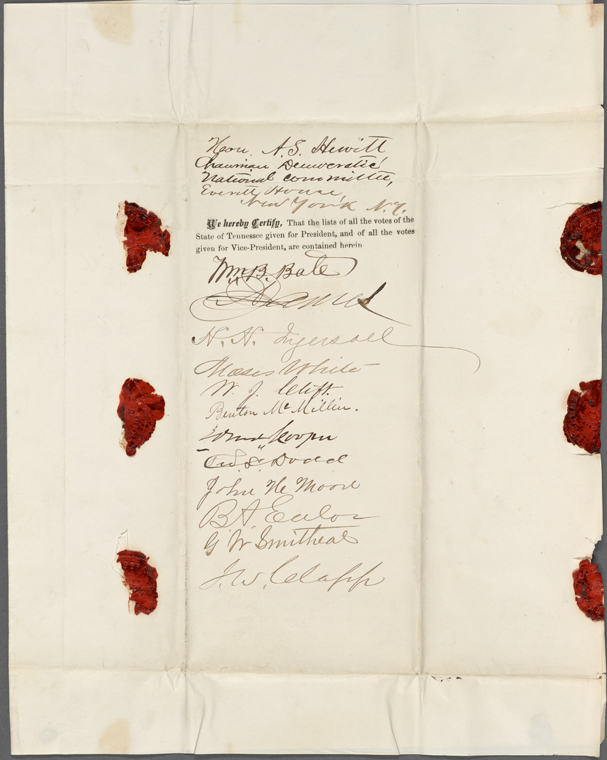 Hon. A. S. Hewitt
Chairman Democratic
National Committee,
Everett House,
New York N.Y.
We hereby Certify, That the lists of all the votes of the
State of Tennessee given for President, and of all the votes
given for Vice-President, are contained herein
Wm B. Bate
N. N. Ingersoll
Moses White
W. J. Clift.
Benton Mc Millin.
Cooper
Dodd
John H. Moore
B A Enloe
G W Smitheal
J. W. Clapp